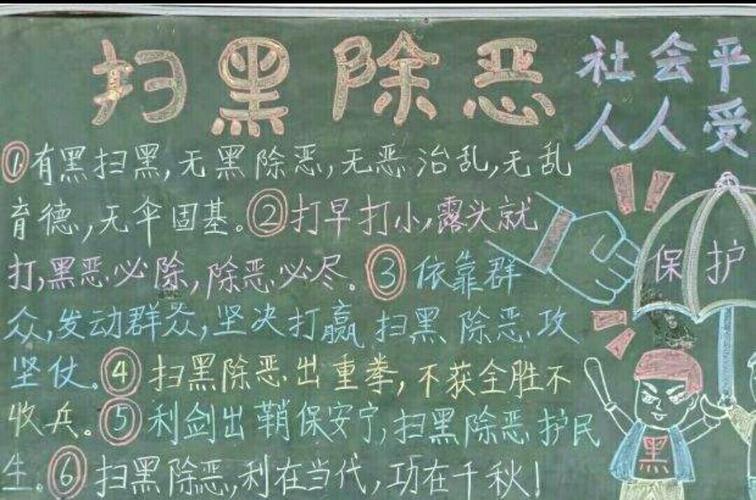 扫黑除恶
社会平
人人受
①有黑扫黑,无黑除恶,无恶治乱,无乱
育德,无伞固基。②打早打小,露头就
打,黑恶必除,除恶必尽。③依靠群
众,发动群众,坚决打赢扫黑除恶攻
坚仗。④扫黑除恶出重拳,不获全胜不
收兵。⑤利剑出鞘保安宁,扫黑除恶护民
生。⑥扫黑除恶,利在当代,功在千秋!
保护
黑